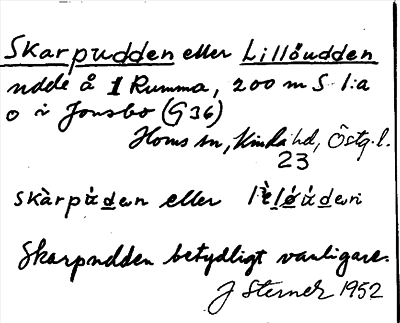 Skarpudden eller Lillöudden
udde å 1 Rumma, 200 m S. l:a
o i Jonsbo (G 36)
Horns sn, Kinda hd, Östg. l.
23
skàrpúden eller
Skarpudden betydligt vanligare.
J Sterner 1952